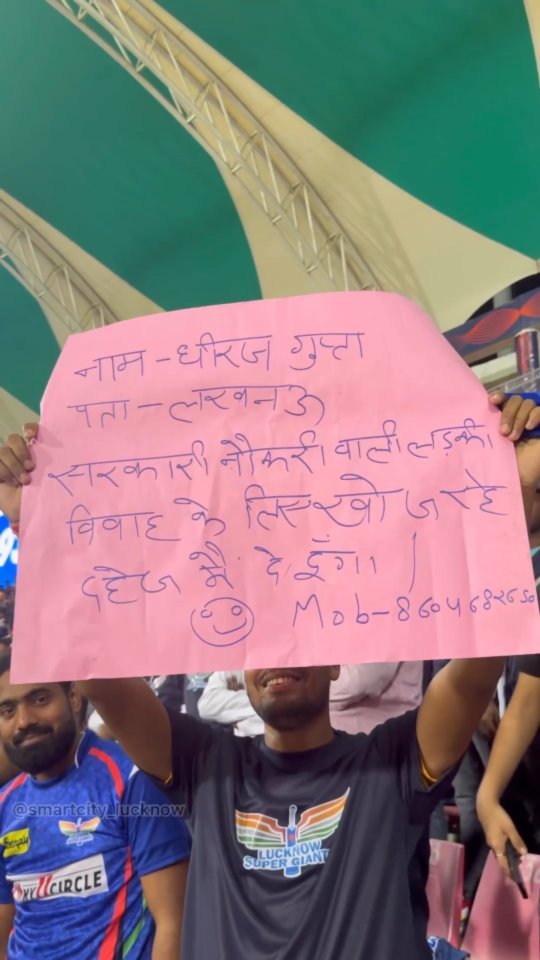 नाम - धीरज गुप्ता
पता - लखनऊ
सरकारी नौकरी वाली लड़की
विवाह के लिए खोज रहे
दहेज मैं दे दूँगा।
Mob-
@smartcity_lucknow
LUCKNOW
SUPER GIANTS
CIRCLE